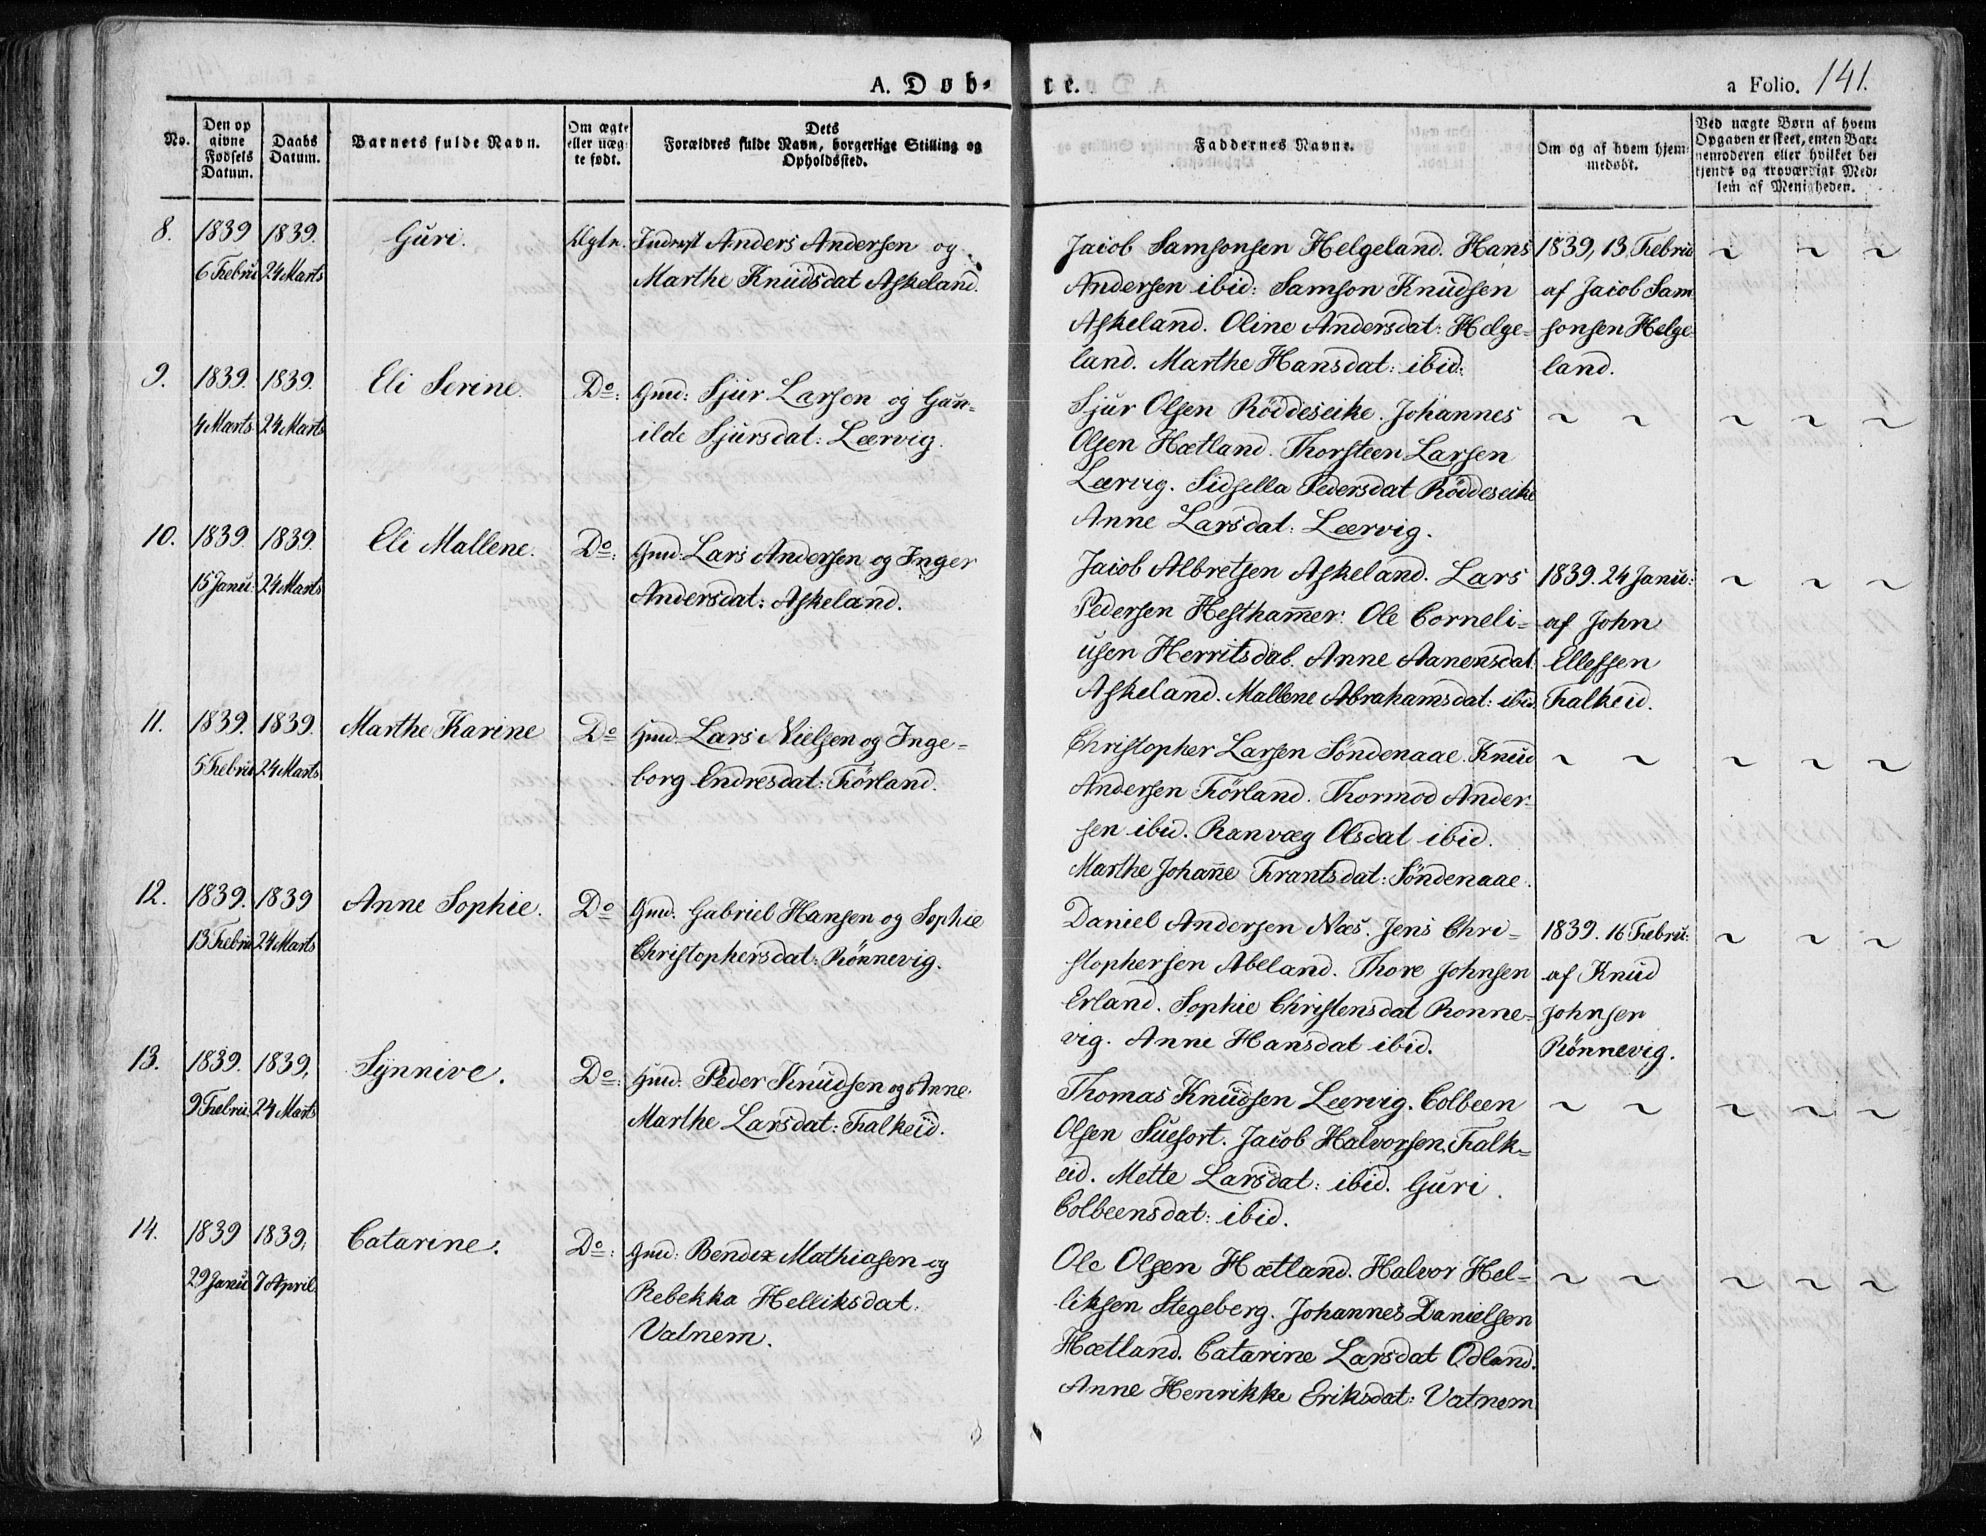 A. Døb-
te.
a Folio. 141.
No.
Den op
givne
Fødsels
Datum.
Daabs
Datum.
Barnets fulde Navn.
Om ægte
eller uæg-
te født.
Dets
Forældres fulde Navn, borgerlige Stilling og
Opholdssted.
Faddernes Navne.
Om og af hvem hjem-
medøbt.
Ved uægte Børn af hvem
Opgaven er skeet, enten Bar-
nemoderen eller hvilket be-
kjendt og troværdigt Med-
lem af Menigheden.
8. 1839 6 Febru 1839. 24 Marts
Guri.
Ægte.
Inderst Anders Andersen og
Marthe Knudsdat Askeland.
Jacob Samsonsen Helgeland. Hans
Andersen ibid: Samson Knudsen
Askeland. Oline Andersdat: Helge-
land. Marthe Hansdat: ibid:
1839, 13. Febru
af Jacob Sam
sonsen Helge
land.
9. 1839. 4 Marts 1839. 24 Marts
Eli Serine.
Do:
Gmd: Sjur Larsen og Gun-
ilde Sjursdat: Leervig.
Sjur Olsen Röddeseike. Johannes
Olsen Hætland. Thorsteen Larsen
Leervig. Sidsella Pedersdat Röddeseike
Anne Larsdat: Leervig.
10. 1839. 15 Janu: 1839. 24 Marts
Eli Mallene.
Do:
Gmd. Lars Andersen og Inger
Andersdat: Askeland.
Jacob Albretsen Askeland. Lars
Pedersen Hesthamer: Ole Corneli-
usen Herritsdal. Anne Aanensdat
Askeland. Mallene Abrahamsdat: ibid
1839. 24 Janu:
af John
Ellefsen
Falkeid.
11. 1839. 5 Febru 1839. 24 Marts
Marthe Karine
Do
Gmd. Lars Nielsen og Inge-
borg Endresdat: Förland.
Christopher Larsen Söndenaae. Knud
Andersen Förland. Thormod Ander-
sen ibid. Ranvæg Olsdat ibid.
Marthe Johane Frantsdat: Söndenaae.
12. 1839. 13 Febru 1839 24 Marts
Anne Sophie.
Do
Gmd. Gabriel Hansen og Sophie
Christophersdat: Rönnevig.
Daniel Andersen Næs. Jens Chri-
stophersen Abeland. Thore Johnsen
Erland. Sophie Christensdat Ronne-
vig. Anne Hansdat ibid.
1839. 16 Febru:
af Knud
Johnsen
Rönnevig.
13. 1839. 9 Febru 1839, 24 Marts
Synnive.
Do:
Gmd. Peder Knudsen og Anne
Marthe Larsdat: Falkeid.
Thomas Knudsen Leervig. Colbeen
Olsen Suefort. Jacob Halvorsen. Falk-
eid. Mette Larsdat: ibid. Guri
Colbeensdat: ibid.
14. 1839 29 Janu 1839, 7 April
Catarine.
Do:
Gmd: Bendix Mathiasen og
Rebekka Helliksdat:
Vatnem.
Ole Olsen Hætland. Halvor Hel-
liksen Stegeberg. Johannes Danielsen
Hætland. Catarine Larsdat Odland.
Anne Henrikke Eriksdat: Vatnem